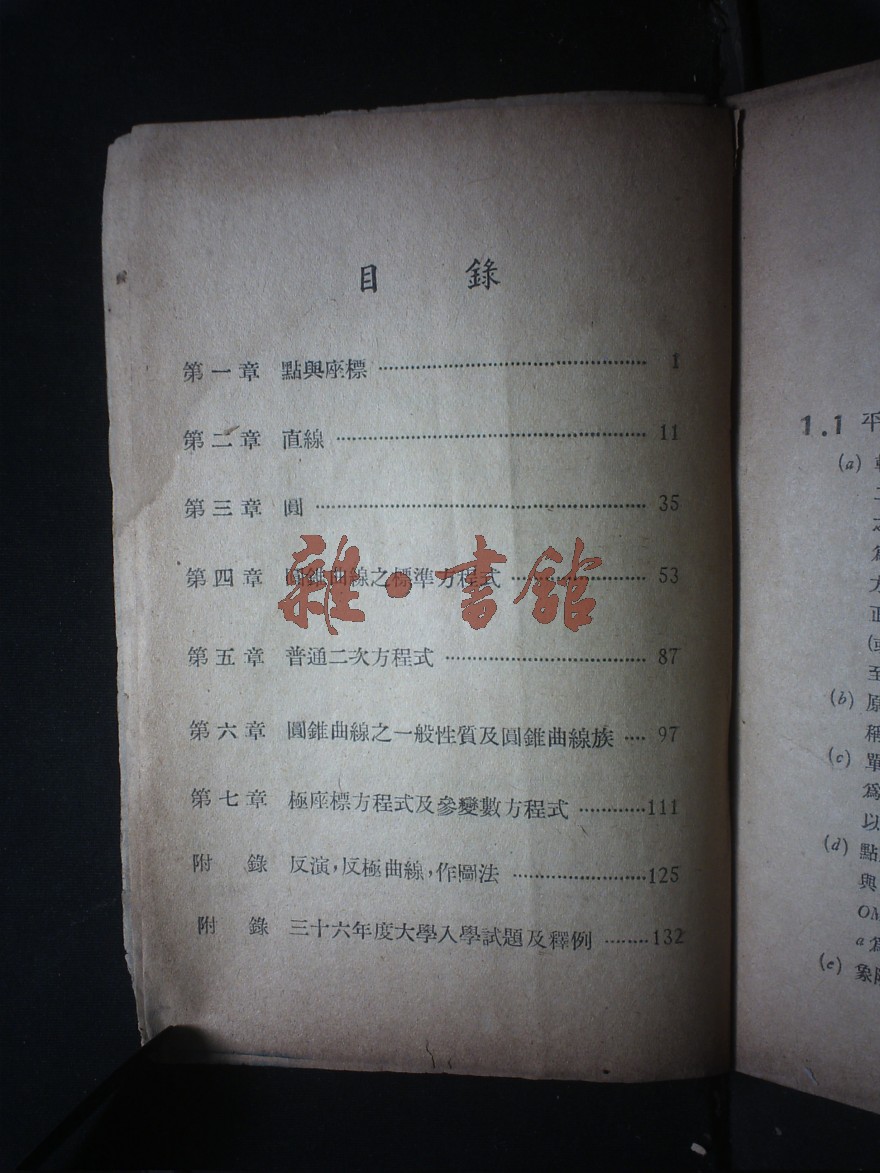 目 錄
第一章 點與座標 ……… 1
第二章 直線 ……… 11
第三章 圓 ……… 35
第四章 圓錐曲線之標準方程式 ……… 53
第五章 普通二次方程式 ……… 87
第六章 圓錐曲線之一般性質及圓錐曲線族 …… 97
第七章 極座標方程式及參變數方程式 ……… 111
附 錄 反演,反極曲線,作圖法 ……… 125
附 錄 三十六年度大學入學試題及釋例 ……… 132
雜·書館
1.1 平
(a)
二
之
爲
方
正
(或
至
(b) 原
稱
(c) 單
爲
以
(d) 點
與
OM
a爲
(e) 象限